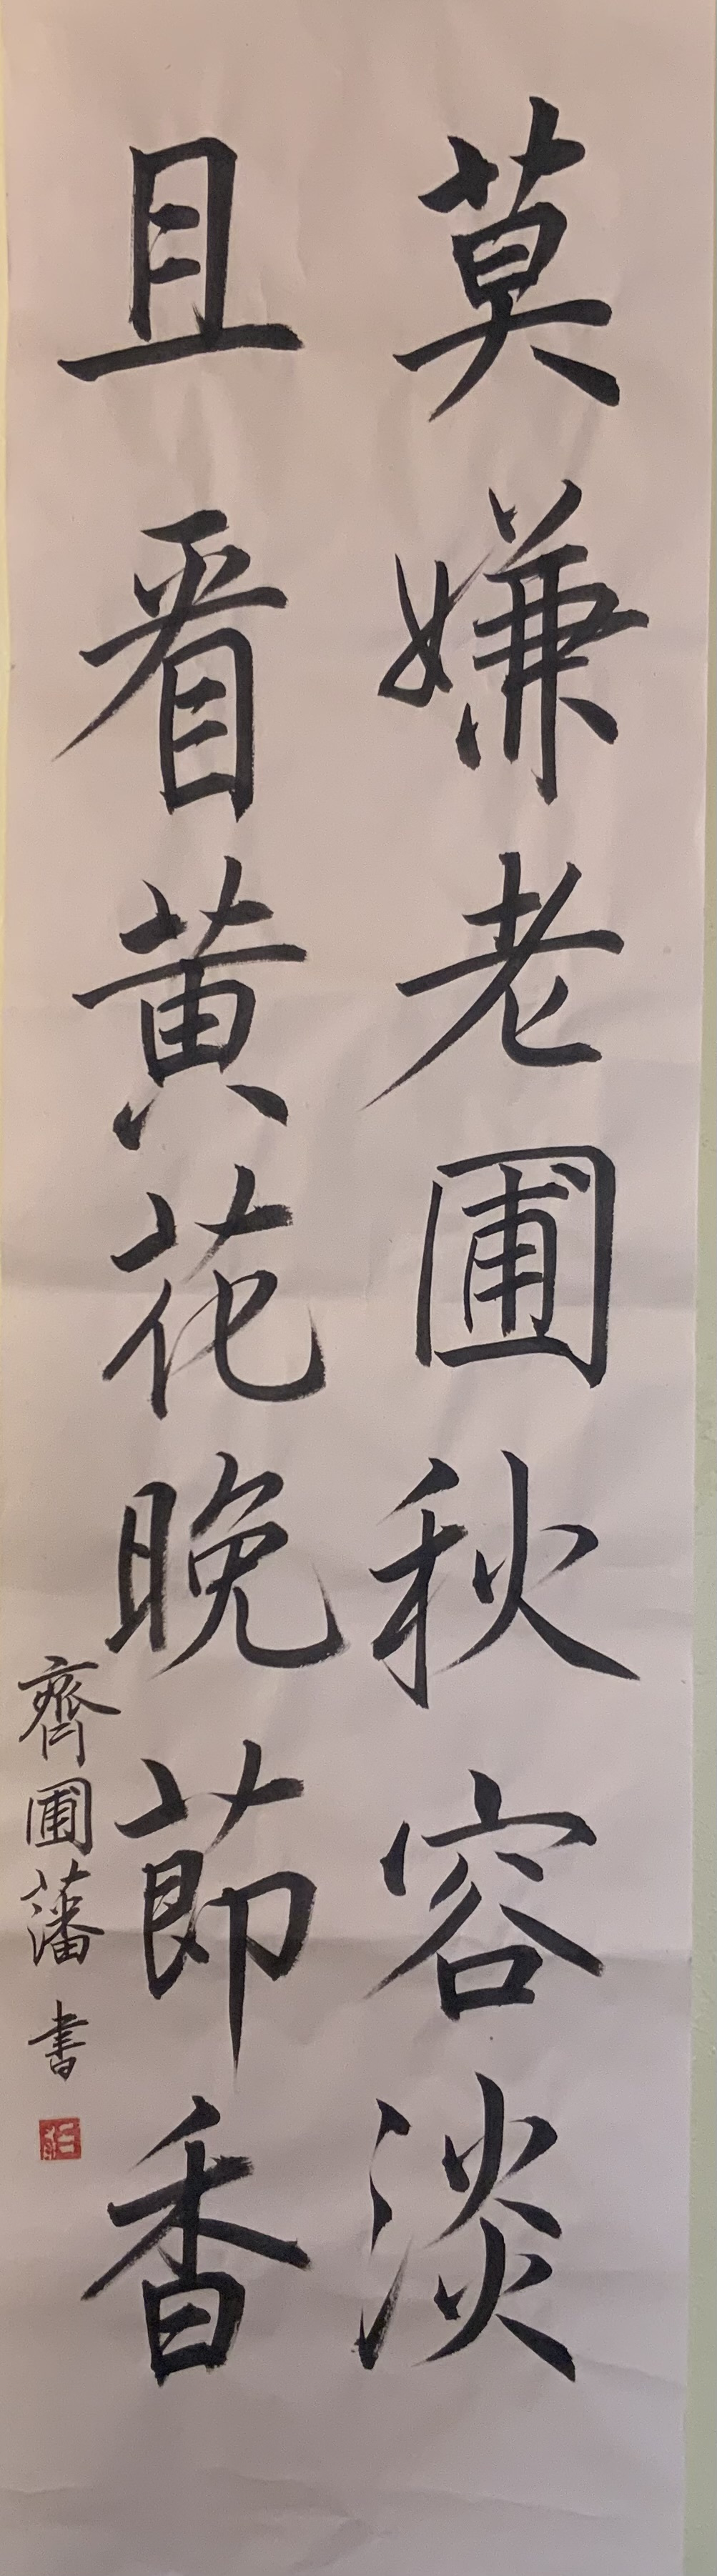 莫嫌老圃秋容淡
且看黄花晚莭香
齊圃藩書